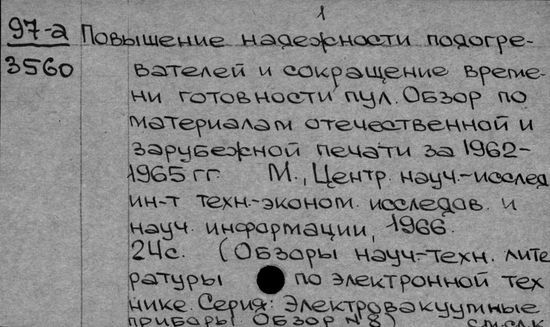 1
97-а Повышение надежности подогре-
3560 вателей и сокращение време-
ни готовности пул. Обзор по
материалам отечественной и
зарубежной печати за 1962-
1965 гг М., Центр. науч.-исслед
ин-т техн.-эконом. исследов. и
науч. информации, 1966.
24с. (Обзоры науч-техн. лите
ратуры по электронной тех
нике. Серия: Электровакуумные
приборы Обзор №8) см.сл.к